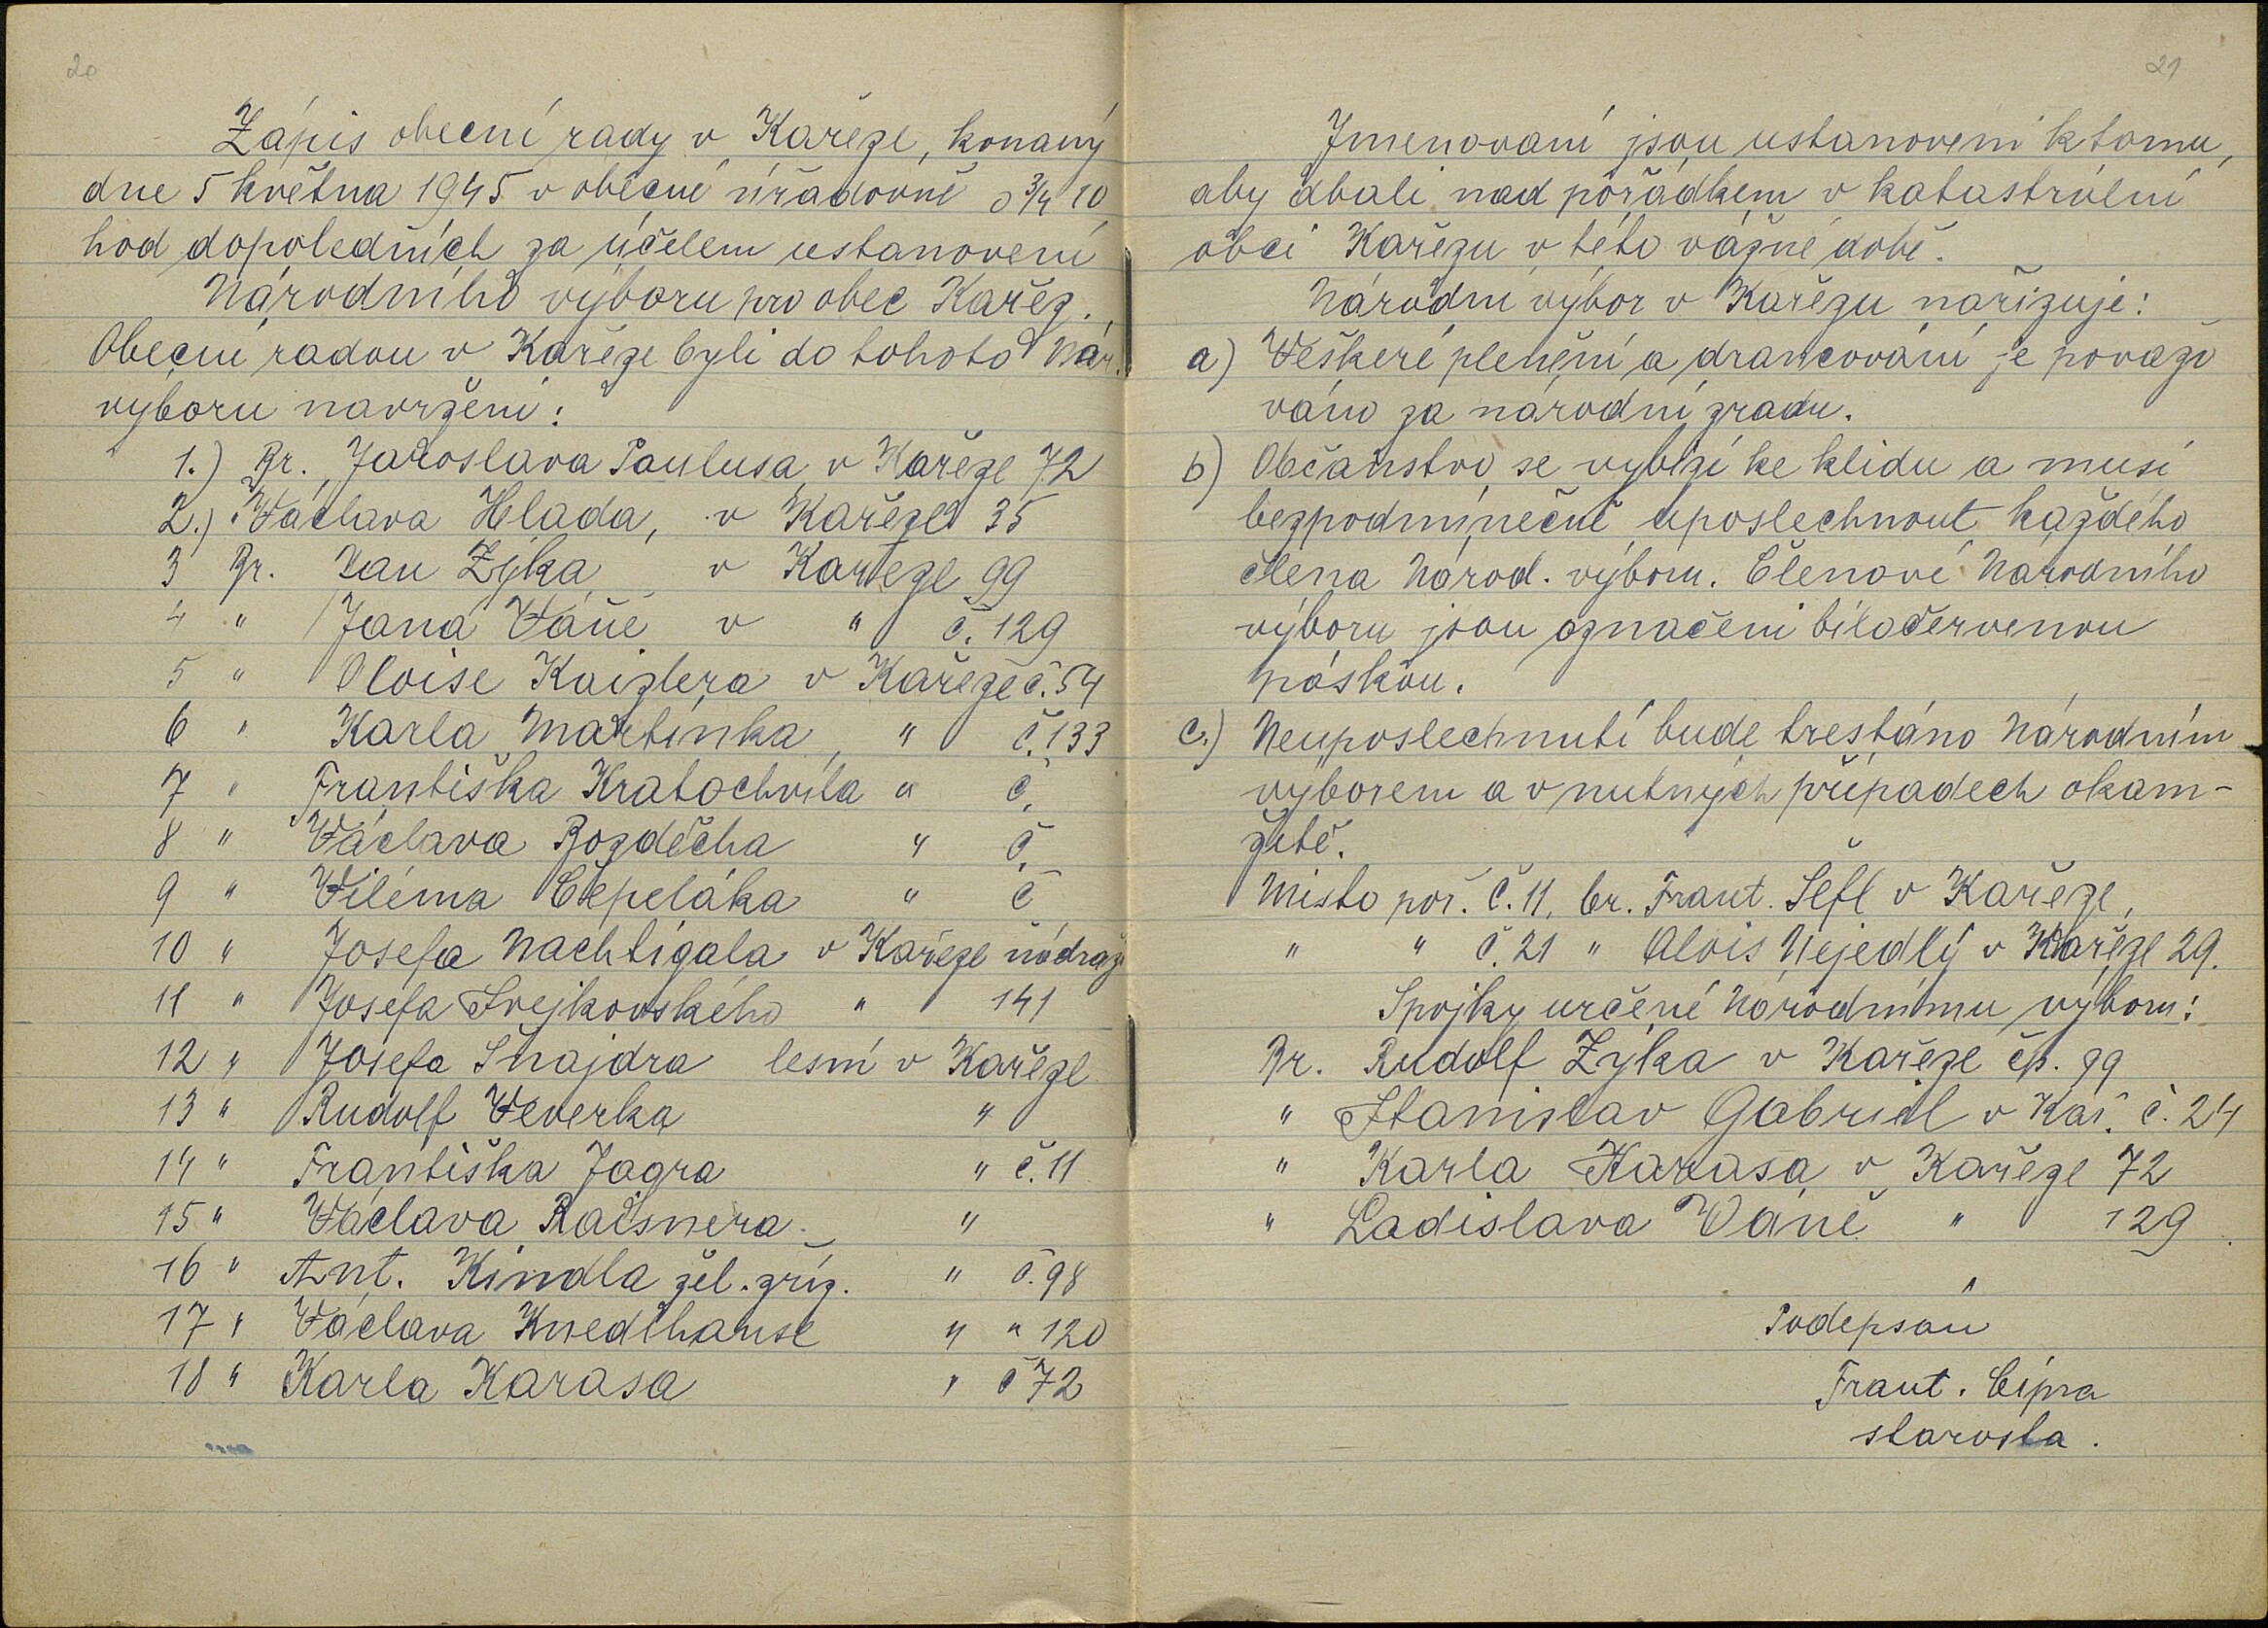 20
Zápis obecní rady v Kařeze, konaný
dne 5 května 1945 v obecné úřadovně o 3/4 10
hod dopoledních za účelem ustanovení
Národního výboru pro obec Kařez.
Obecní radou v Kařeze byli do tohoto Nár.
výboru navrženi:
1.) Br. Jaroslava Paulusa v Kařeze 72
2.) " Václava Hlada, v Kařeze 35
3 Br. Jan Zýka v Kařeze 99
4 " Jana Váně v " č. 129
5 " Aloise Kaizlera v Kařeze č. 54
6 " Karla Martínka, " č. 133
7 " Františka Kratochvíla " č.
8 " Václava Rozděcha " č.
9 " Viléma Čepeláka " č
10 " Josefa Nachtigala v Kařeze nádraží
11 " Josefa Svejkovského " 141
12 " Josefa Šnajdra lesní v Kařeze
13 " Rudolf Veverka "
14 " Františka Jagra " č. 11
15 " Václava Raisnera "
16 " Ant. Kindla žel. zříz. " č. 98
17 " Václava Knedlhanse " " 120
18 " Karla Karasa " č 72
21
Jmenovaní jsou ustanoveni k tomu,
aby dbali nad pořádkem v katastrální
obci Kařezu v této vážné době.
Národní výbor v Kařezu nařizuje:
a) Veškeré plenění a drancování je považo
váno za národní zradu.
b) Občanstvo se vybízí ke klidu a musí
bezpodmínečně uposlechnout každého
člena Národ. výboru. Členové Národního
výboru jsou označeni bíločervenou
páskou.
c.) Neuposlechnutí bude trestáno Národním
výborem a v nutných případech okam-
žitě.
Místo poř. č. 11. br. Frant. Šefl v Kařeze,
" " č. 21 " Alois Nejedlý v Kařeze 29.
Spojky určené Národnímu výboru:
Br. Rudolf Zýka v Kařeze čp. 99
" Stanislav Gabriel v Kař. č. 24
" Karla Karasa v Kařeze 72
" Ladislava Váně " 129
Podepsán
Frant. Cípra
starosta.